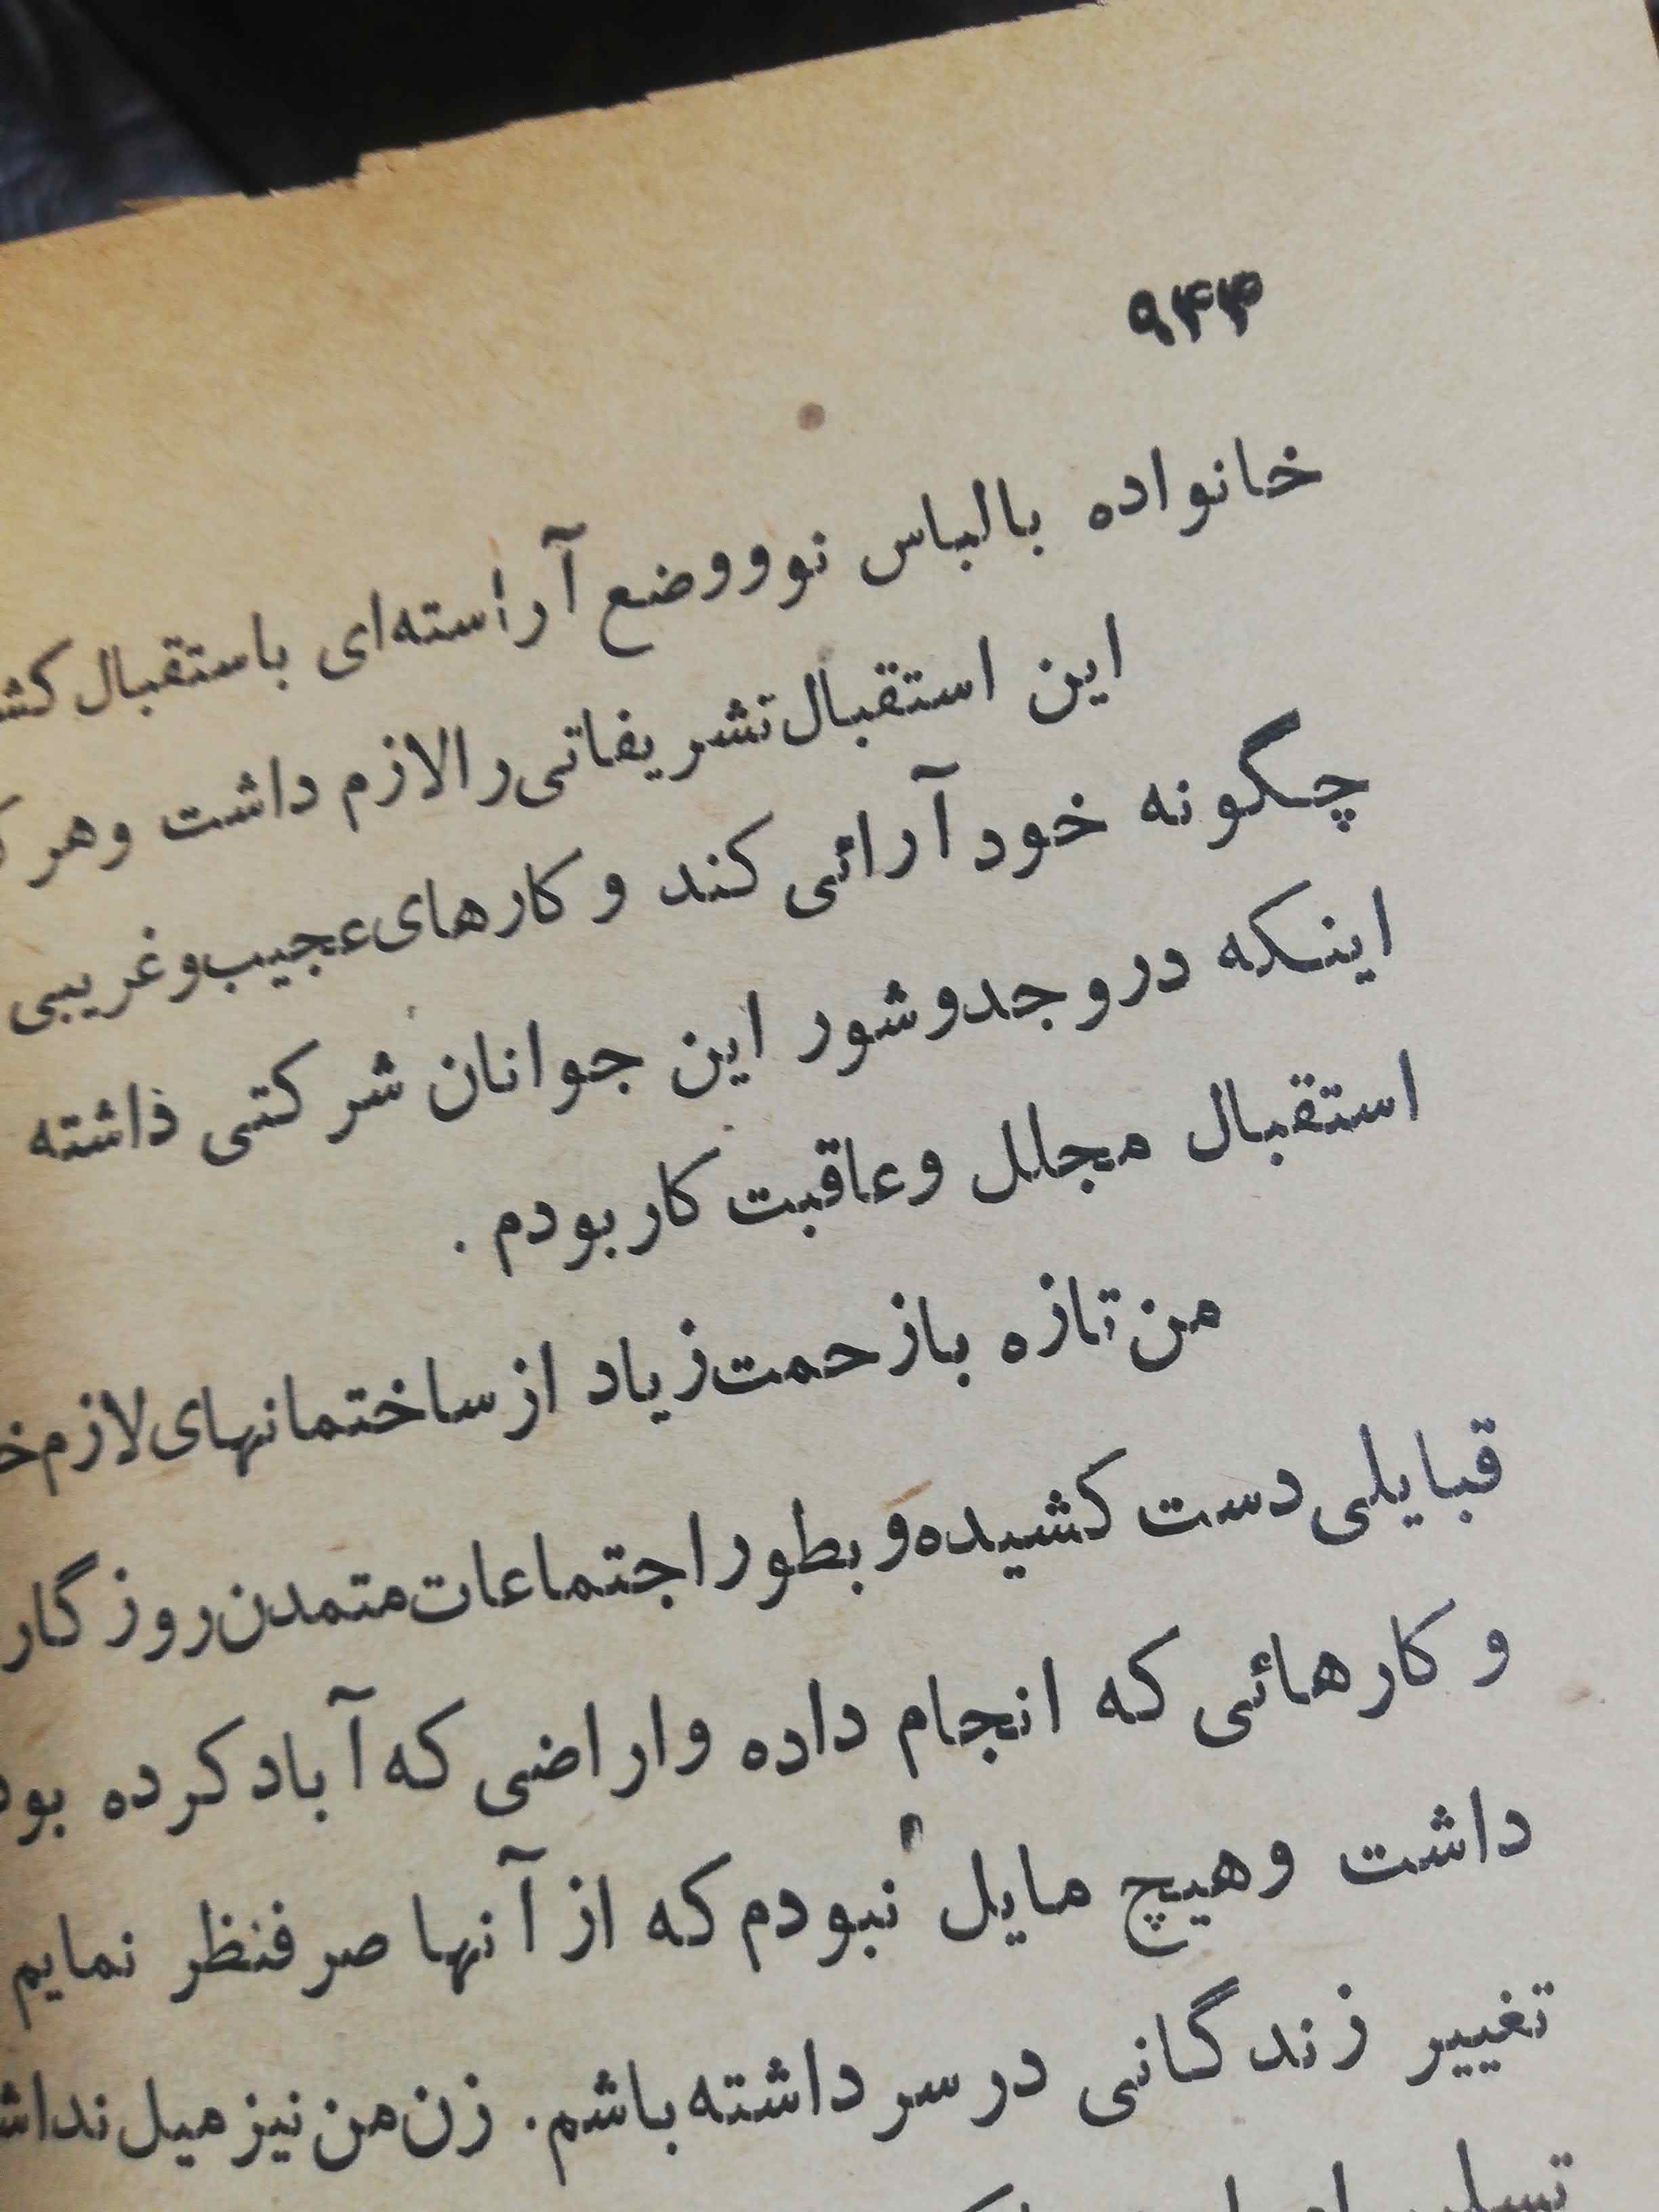 ۹۴۴
خانواده بالباس نو ووضع آراسته‌ای باستقبال
این استقبال تشریفاتی را لازم داشت وهر
چگونه خود آرائی کند و کارهای عجیب و غریبی
اینکه در وجد و شور این جوانان شرکتی داشته
استقبال مجلل و عاقبت کار بودم .
من تازه با زحمت زیاد از ساختمانهای لازم
قبایلی دست کشیده و بطور اجتماعات متمدن روزگار
و کارهائی که انجام داده و اراضی که آباد کرده
داشت وهیچ مایل نبودم که از آنها صرفنظر نمایم
تغییر زندگانی در سر داشته باشم. زن من نیز میل